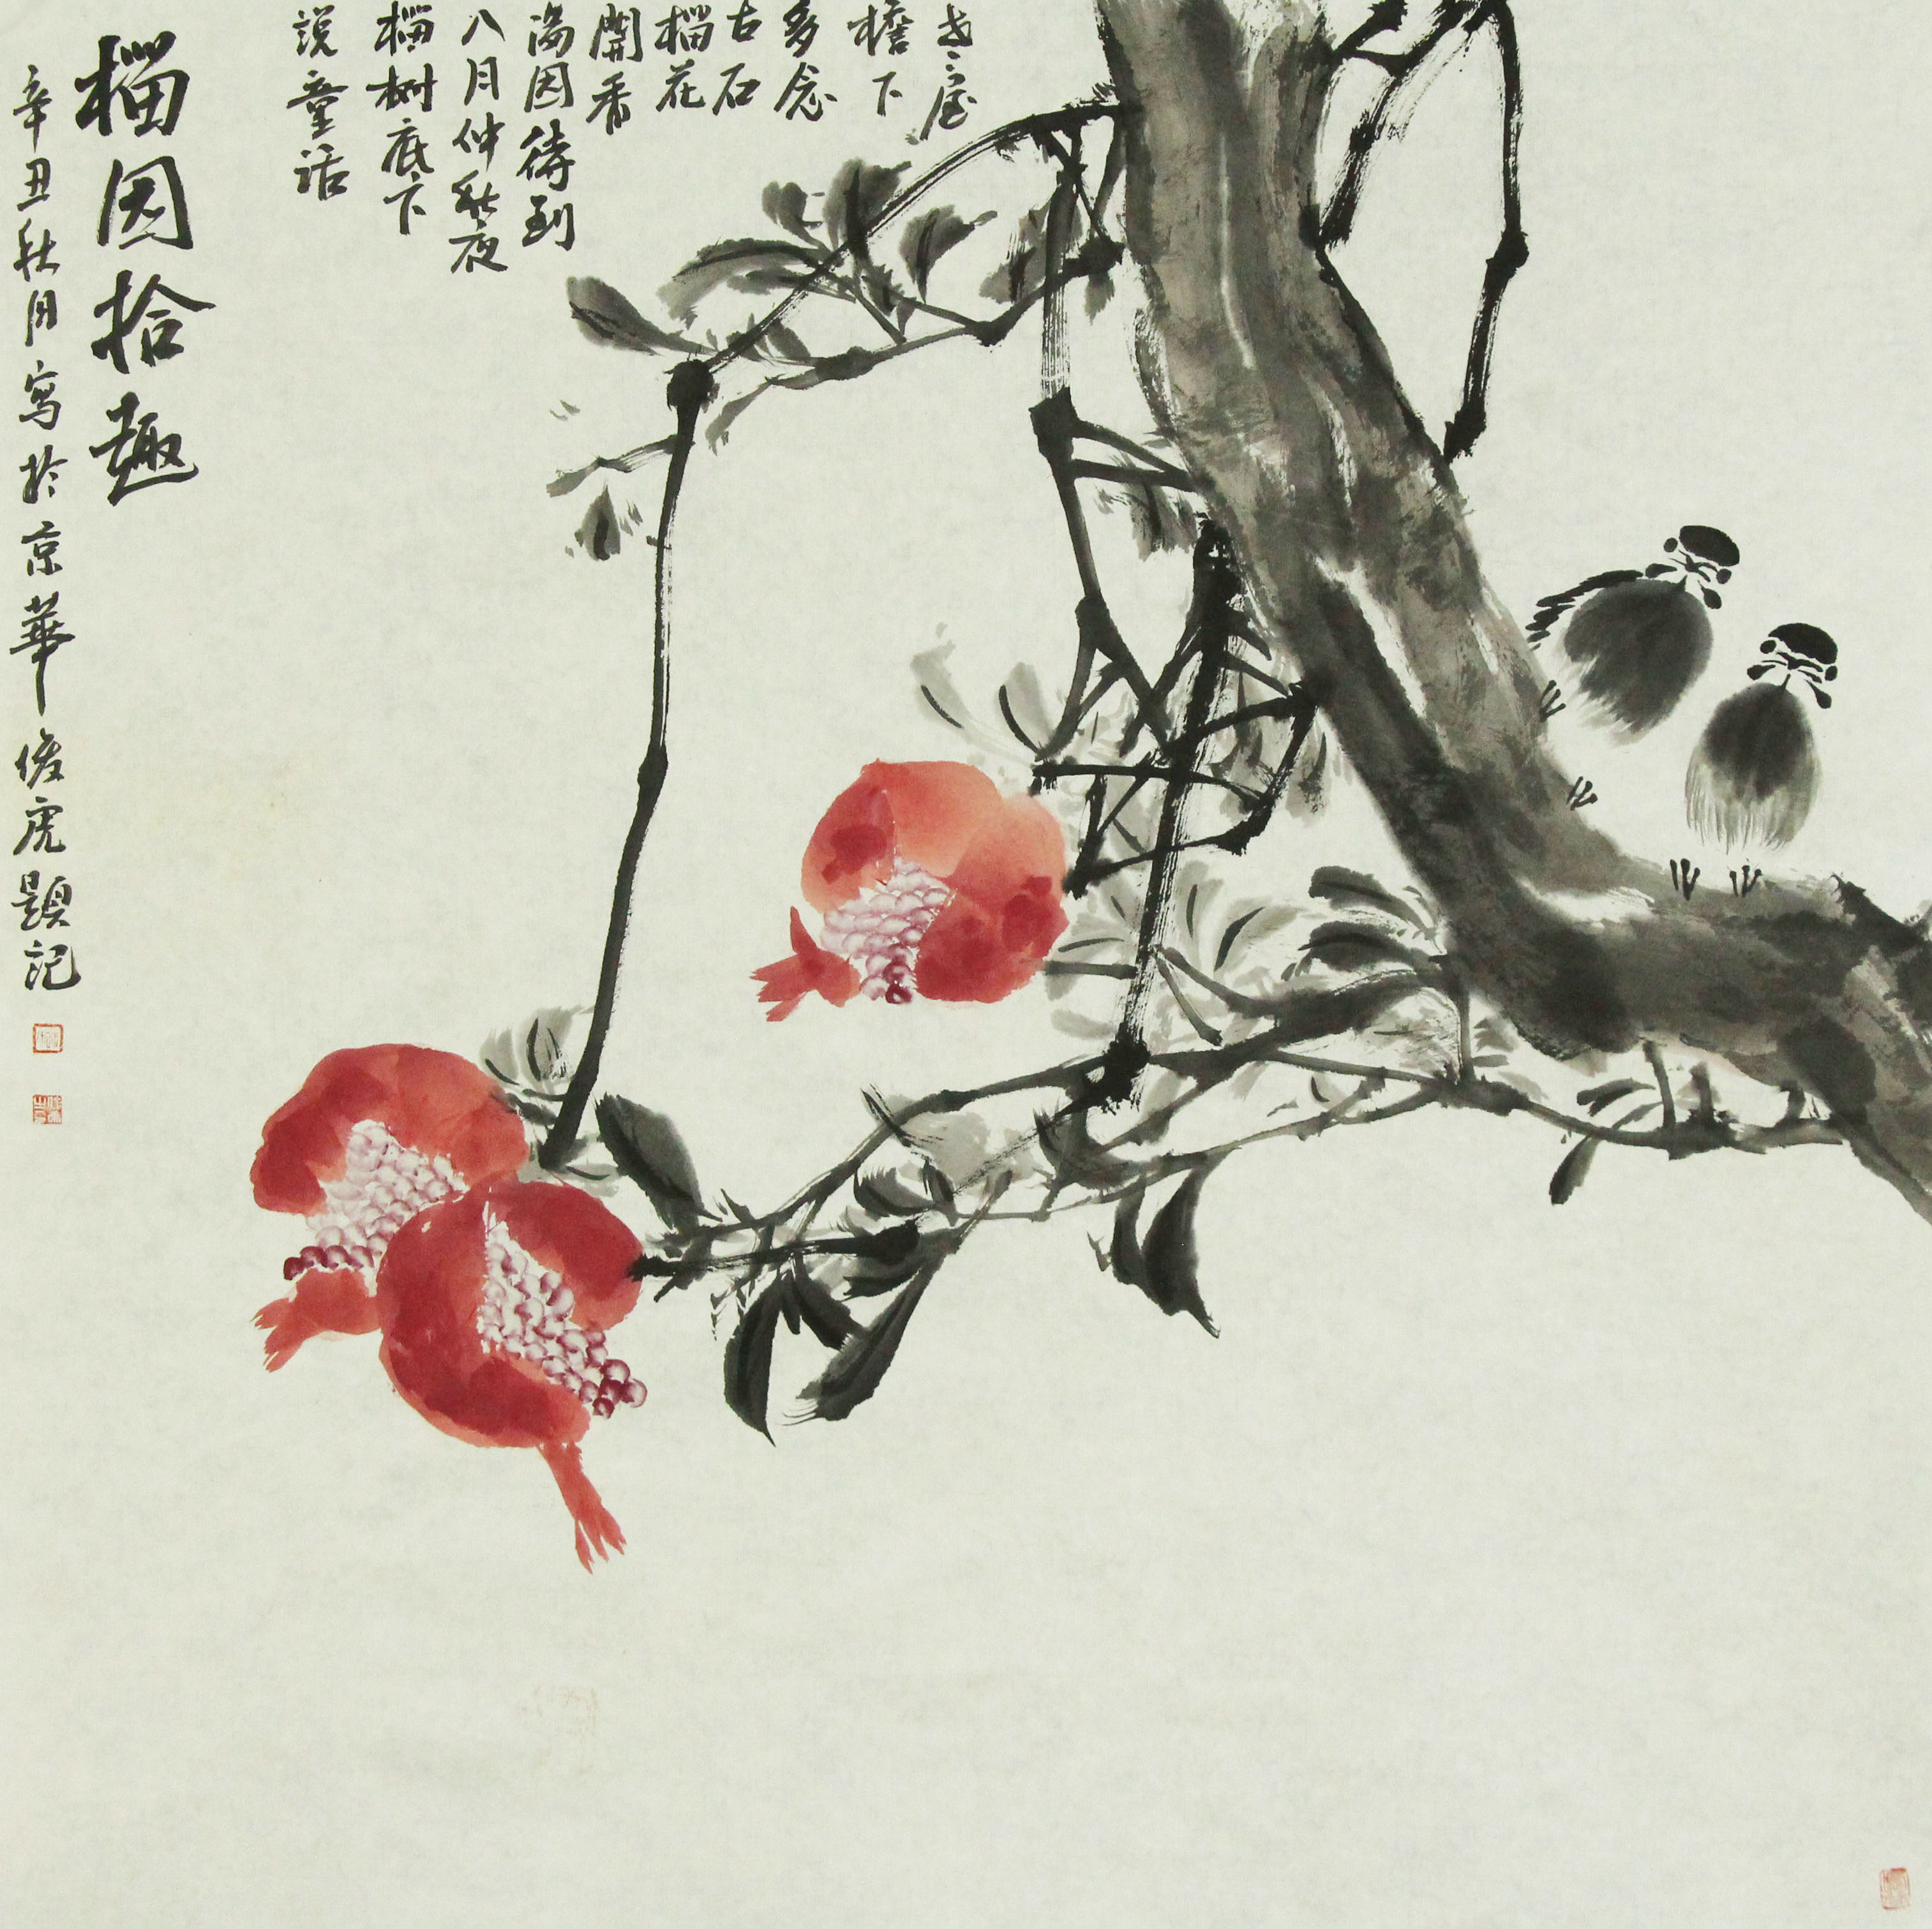 老屋
檐下
多念
古石
榴花
開香
满园待到
八月仲秋夜
榴樹底下
說童話
榴园拾趣
辛丑秋月寫於京華俊虎題記